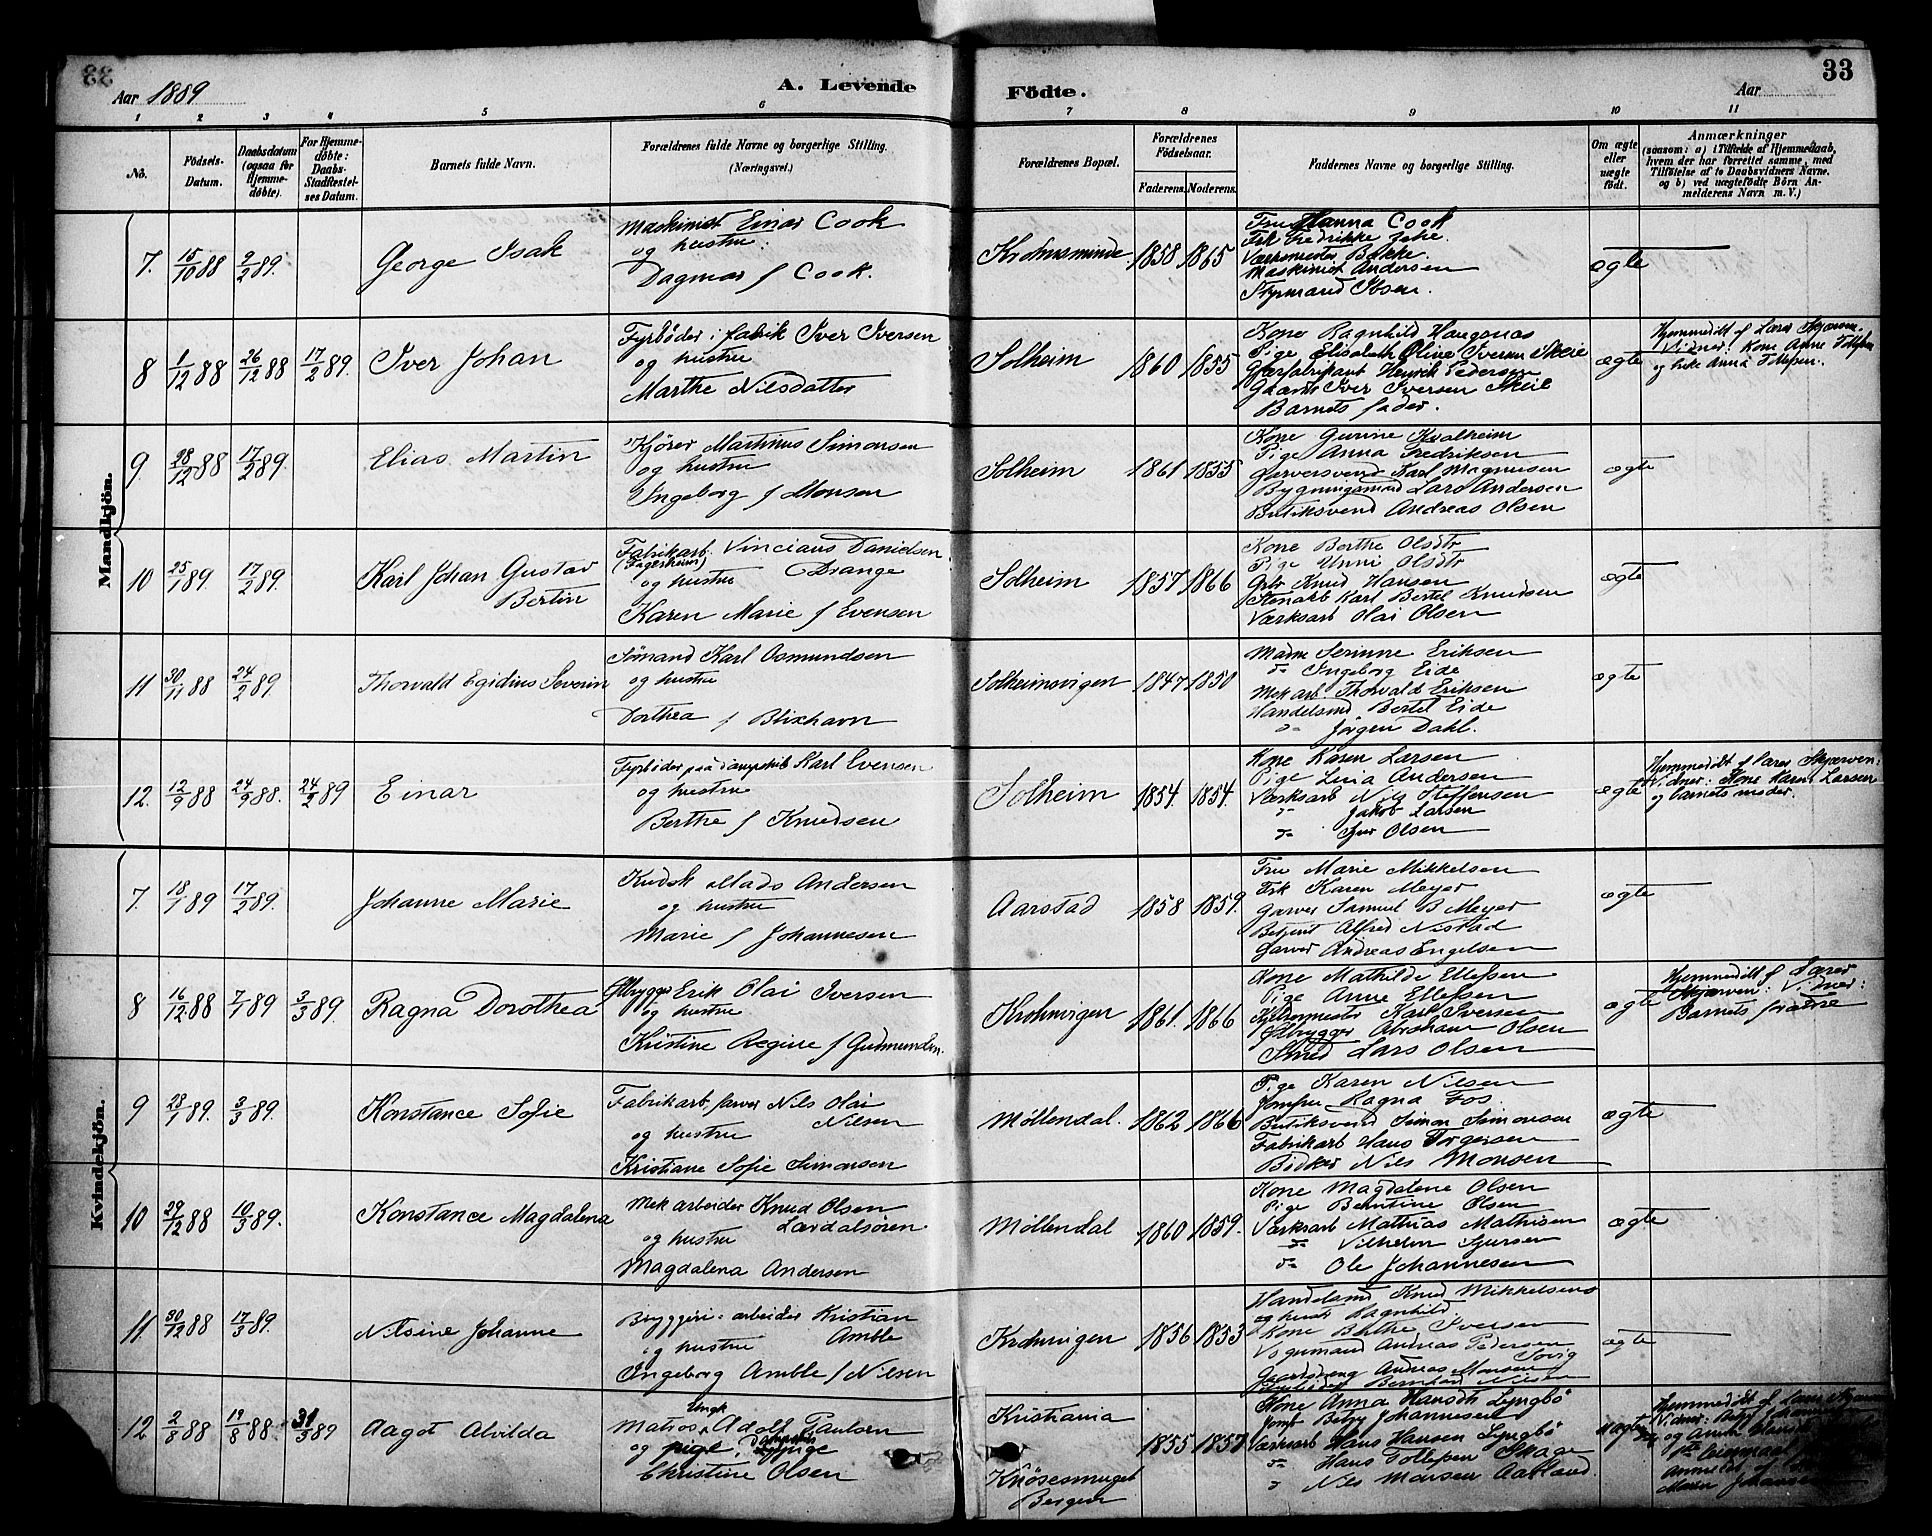 33
Aar 1889
A. Levende
Födte.
Aar
33
1 2 3 4 5 6 7 8 9 10 11
No.
Födsels-Datum.
Daabsdatum (ogsaa for Hjemmedøbte).
For Hjemmedøbte: Daabs-Stadfæstelses Datum.
Barnets fulde Navn.
Forældrenes fulde Navne og borgerlige Stilling.
(Næringsvei.)
Forældrenes Bopæl.
Forældrenes Födselsaar.
Faderens. Moderens.
Faddernes Navne og borgerlige Stilling.
Om ægte eller uægte født.
Anmærkninger
(saasom: a) i Tilfælde af Hjemmedaab,
hvem der har forrettet samme, med
Tilføielse af to Daabsvidners Navne.
og b) ved uægtefødte Börn An-
melderens Navn m. V.)
Mandkjön.
7. 15/10 88 9/2 89. George Isak
Maskinist Einar Cook
og hustru
Dagmar f Cook.
1858 1865
Fru Hanna Cook
Frk Fredrikke
Værkmester Bakke
Maskinist Andersen
Styrmand Ibsen.
ægte
8 1/12 88 26/12 88 17/2 89. Iver Johan
Fyrbøder i fabrik Iver Iversen
og hustru
Marthe Nilsdatter
Solheim 1860 1855
Kone Ragnhild Haugenæs
Pige Elisabeth Oline Iversen Skeie
Gjærfabrikant Henrik Pedersen
Gaardb Iver Iversen Skeie
Barnets fader.
ægte
Hjemmedöbt af Lærer Skjærven.
Vidner: Kone Anne Tollefsen
og Anna Tollefsen.
9. 28/12 88 17/2 89. Elias Martin
Kjörer Martinus Simonsen
og hustru
Ingeborg f Monsen
Solheim 1861 1855
Kone Gurine Kvalheim
Pige Anna Fredriksen
Garversvend Karl Magnusen
Bygningsmand Lars Andersen
Butiksvend Andreas Olsen
ægte
10 25/1 89. 17/2 89. Karl Johan Gustav Bertin
Fabrikarb. Vincians Danielsen
(Fagesheim)
og hustru Drange
Karen Marie f Evensen
Solheim 1857 1866
Kone Berthe Olsdtr
Pige Unni Olsdtr
Gbr Knud Hansen
Stenarb Karl Bertel Knudsen
Værksarb Olai Olsen
ægte
11 30/11 88 24/2 89 Thorvald Egidius Severin
Sömand Karl Osmundsen
og hustru
Dorthea f Blixhavn
Solheimsvigen 1847 1850
Madm Serinne Eriksen
do Ingeborg Eide
Mek arb Thorvald Eriksen
Handelsmd Bertel Eide
do Jörgen Dahl.
ægte
12. 12/9 88 24/9 88. 24/2 89 Einar
Fyrbøder paa dampskib Karl Evensen
og hustru
Berthe f Knudsen
Solheim 1854. 1854.
Kone Karen Larsen
Pige Lina Andersen
Værksarb Nils Steffensen
do Jakob Larsen
do Olsen
ægte
Hjemmedöbt af Lærer Skjærven:
Vidner: Kone Karen Larsen
og barnets moder.
Kvindekjön.
7. 18/1 89 17/2 89. Johanne Marie
Kudsk Mads Andersen
og hustru
Marie f Johannesen
Aarstad 1858 1859.
Fru Marie Mikkelsen
Frk Karen Meyer
Garver Samuel B Meyer
Betjent Alfred Nistad
Garver Andreas Engelsen
ægte
8 16/12 88 7/1 89 3/3 89. Ragna Dorothea
Ølbrygger Erik Olai Iversen
og hustru
Kristine Regine f Gudmundsen.
Krohnvigen 1861. 1866
Kone Mathilde Ellefsen
Pige Anne Ellefsen
Kjeldermester Karl Iversen
Ølbrygger Abraham Olsen
Smed Lars Olsen
ægte
Hjemmedöbt af Lærer
Skjærven: Vidner:
Barnets forældre
9 28/1 89. 3/3 89. Konstance Sofie
Fabrikarb, farver Nils Olai
og hustru Nilsen
Kristiane Sofie Simonsen
Möllendal. 1862 1866
Pige Karen Nilsen
Jomfru Ragna Fos.
Butiksvend Simon Simonsen
Fabrikarb Hans Torgersen
Bødker Nils Monsen
ægte
10 29/12 88 10/3 89. Konstance Magdalena
Mek arbeider Knud Olsen
Lærdalsören
og hustru
Magdalena Andersen
Möllendal 1860 1859.
Kone Magdalene Olsen
Pige Berntine Olsen
Værksarb Mathias Mathisen
do Vilhelm Sjursen
do Ole Johannesen
ægte
11. 30/12 88 17/3 89. Nilsine Johanne
Bryggeri-arbeider Kristian
og hustru Amble
Ingeborg Amble f Nilsen
Krohnvigen 1856 1853
Handelsmd Knud Mikkelsen
og hustr Ragnhild
Kone Berthe Iversen
Vognmand Andreas Pedersen
Gaardsdreng Andreas Monsen
Bernhard Nilsen
ægte
12 2/8 88 19/8 88. 31/3 89 Aagot Alvilda
Ungk
Matros Adolf Paulsen
og pige
Christine Olsen
Kristiania
Knösesmuget
Bergen
1855 1857
Kone Anna Hansdtr Lyngbö
Jomf Betsy Johannesen
Værksarb Hans Hansen Lyngbö
do Hans Tollefsen Skage
do Nils Monsen Aabland.
uægte
Hjemmedöbt af Lærer
Vidner: Betsy